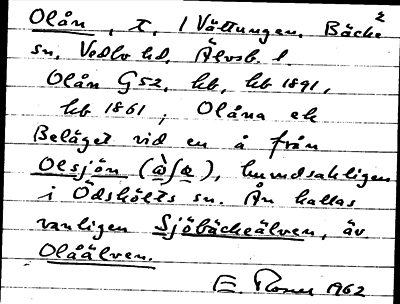 Olån, t, 1 Vättungen, Bäcke 2
sn, Vedbo hd, Älvsb. l.
Olån G52, kb, hb 1891,
kb 1861; Olåna ek
Beläget vid en å från
Olsjön (ὼʃœ), huvudsakligen
i Ödskölts sn. Ån kallas
vanligen Sjöbäckeälven, äv.
Olåälven.
E. Rosen 1962